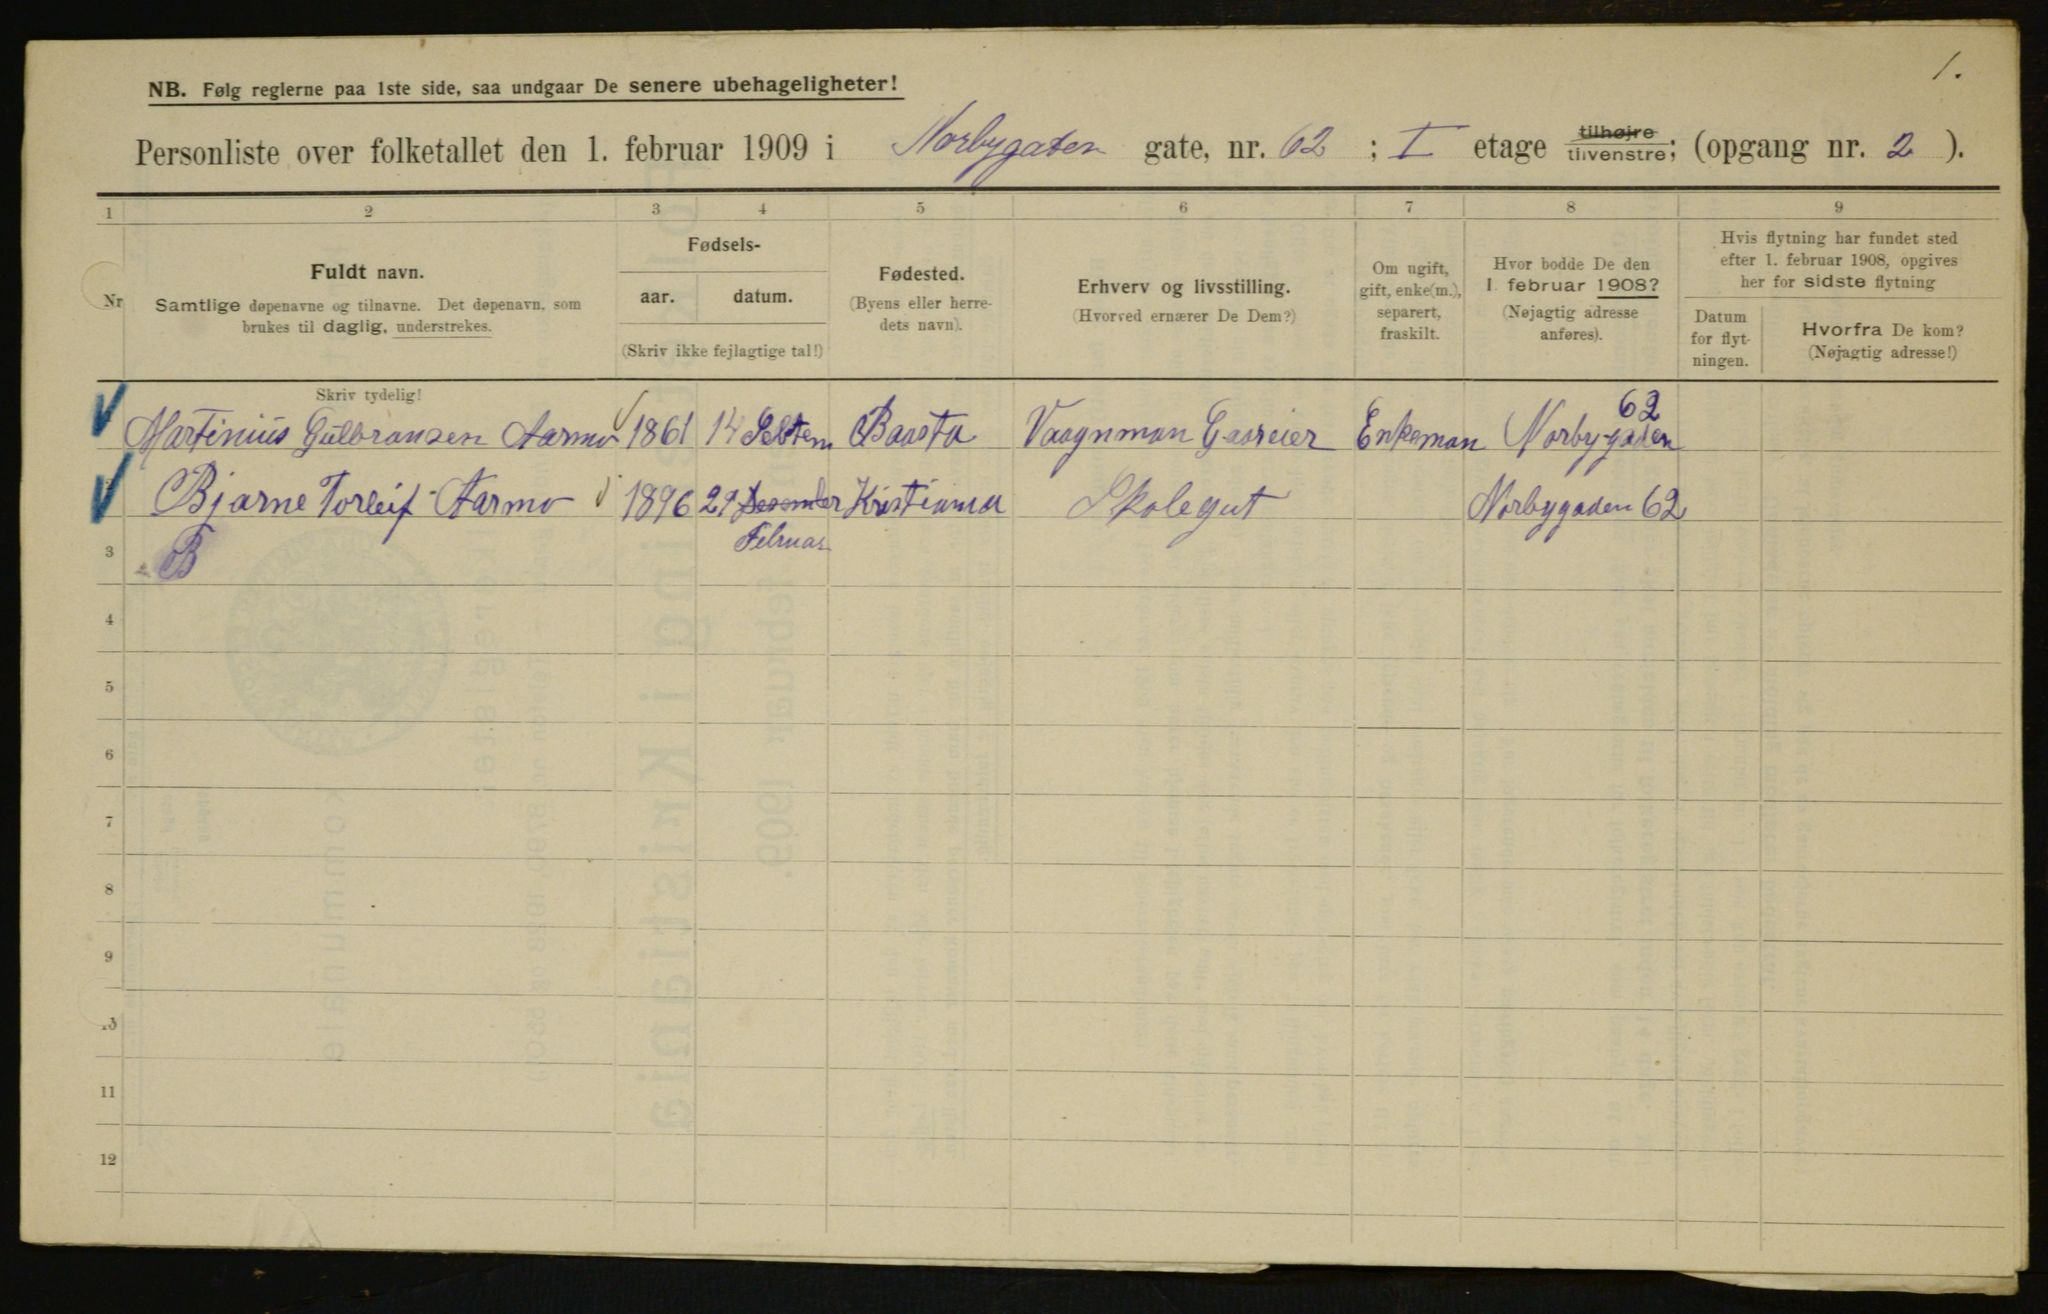 1.
NB. Følg reglerne paa 1ste side, saa undgaar De senere ubehageligheter!
Personliste over folketallet den 1. februar 1909 i Norbygaten gate, nr. 62 ; I etage tilhøjre tilvenstre; (opgang nr. 2 ).
1 2 3 4 5 6 7 8 9
Nr
Fuldt navn.
Samtlige døpenavne og tilnavne. Det døpenavn, som
brukes til daglig, understrekes.
Skriv tydelig!
Fødsels-
aar. datum.
(Skriv ikke fejlagtige tal!)
Fødested.
(Byens eller herre-
dets navn).
Erhverv og livsstilling.
(Hvorved ernærer De Dem?)
Om ugift,
gift, enke(m.),
separert,
fraskilt.
Hvor bodde De den
1. februar 1908?
(Nøjagtig adresse
anføres).
Hvis flytning har fundet sted
efter 1. februar 1908, opgives
her for sidste flytning
Datum
for flyt-
ningen.
Hvorfra De kom?
(Nøjagtig adresse!)
Martinius Gulbransen Aarmo 1861 14 Baasta Vaagnman Enkeman Norbygaden 62
2 Bjarne Torleif Aarmo 1896 29 Desember Februar Kristiania Skolegut Norbygaden 62
3 B
4
5
6
7
8
9
10
11
12